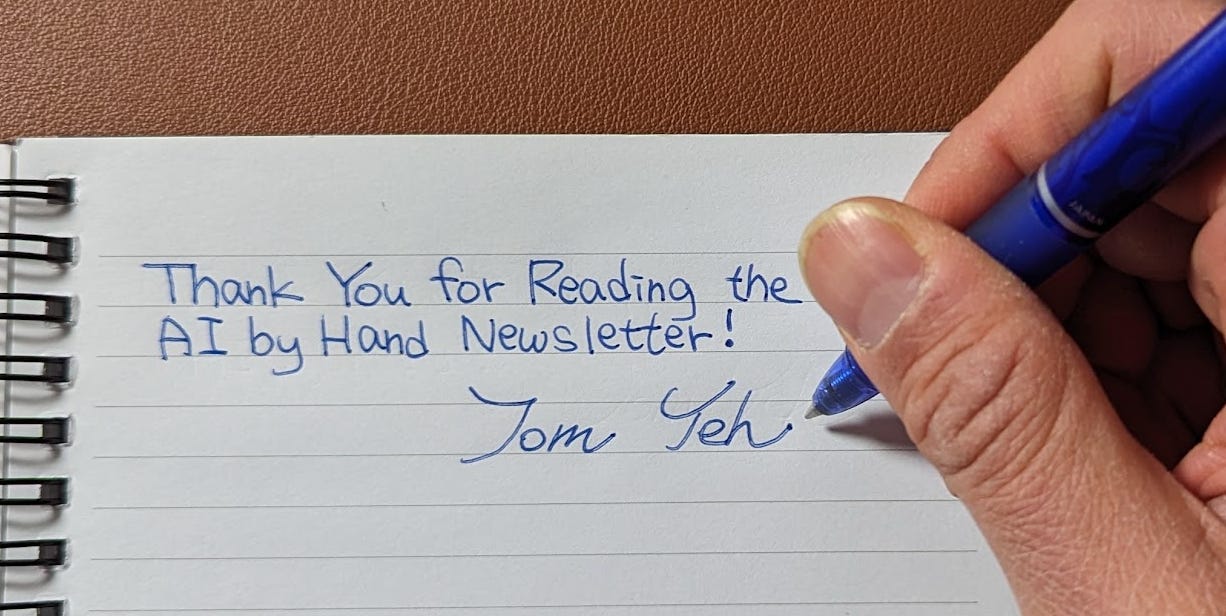 Thank You for Reading the
AI by Hand Newsletter!
Tom Yeh
JAPAN